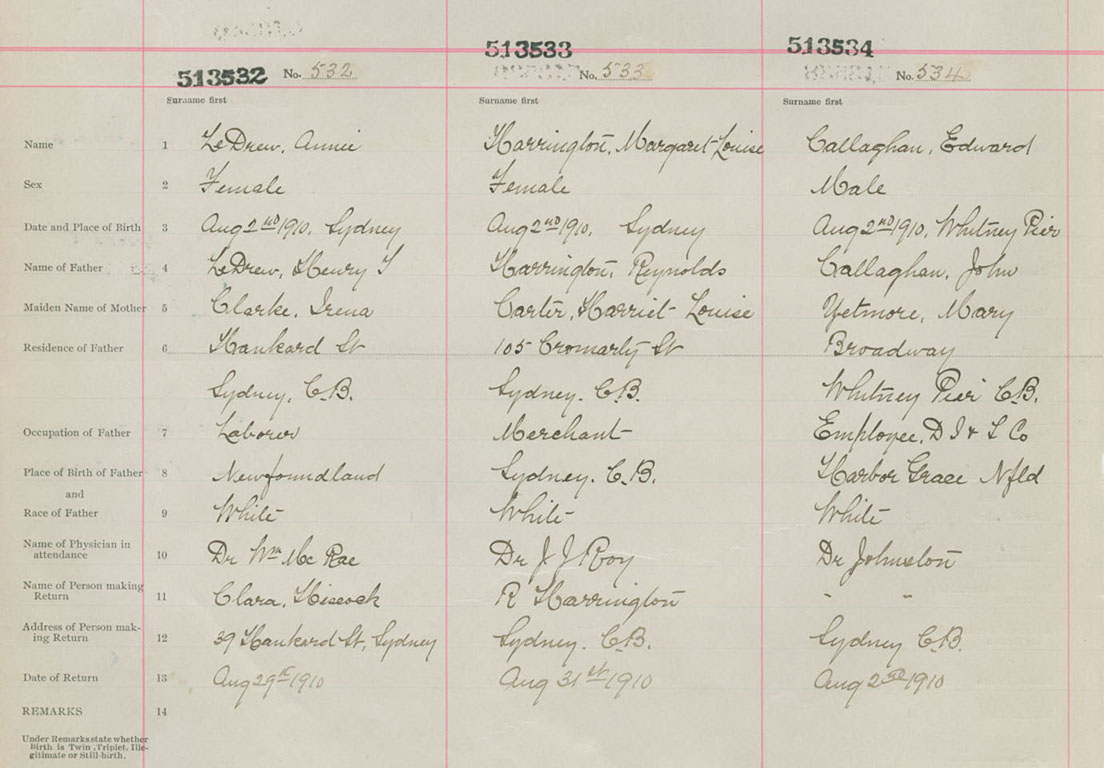 513532 No. 532 513533 No. 533 513534 No. 534
Surname first Surname first Surname first
Name 1 LeDrew, Annie Harrington, Margaret Louise Callaghan, Edward
Sex 2 Female Female Male
Date and Place of Birth 3 Aug 2nd 1910, Sydney Aug 2nd 1910, Sydney Aug 2nd 1910, Whitney Pier
Name of Father 4 LeDrew, Henry J Harrington, Reynolds Callaghan, John
Maiden Name of Mother 5 Clarke, Irena Carter, Harriet Louise Yetmore, Mary
Residence of Father 6 Hankard St 105 Cromarty St Broadway
Sydney, C.B. Sydney. C.B. Whitney Pier C.B.
Occupation of Father 7 Laborer Merchant Employee, D I & S Co
Place of Birth of Father 8 Newfoundland Sydney. C.B. Harbor Grace Nfld
and
Race of Father 9 White White White
Name of Physician in
attendance 10 Dr Wm Mc Rae Dr J J Roy Dr Johnston
Name of Person making
Return 11 Clara, Hiscock R Harrington " "
Address of Person mak-
ing Return 12 39 Hankard St, Sydney Sydney. C.B. Sydney C.B.
Date of Return 13 Aug 29th 1910 Aug 31st 1910 Aug 2nd 1910
REMARKS 14
Under Remarks state whether
Birth is Twin, Triplet, Ille-
gitimate or Still-birth.